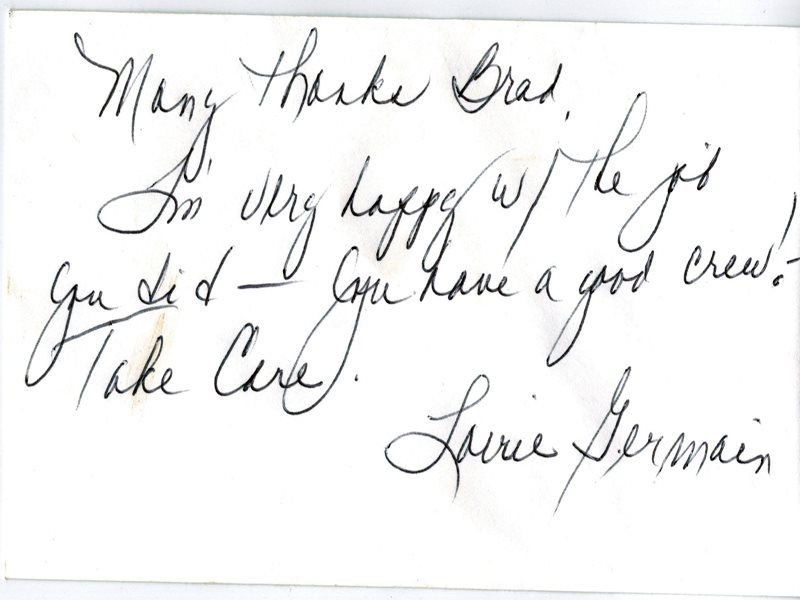 Many thanks Brad,
I'm very happy w/ the job
you did — you have a good crew!
Take Care.
Lorrie Germain